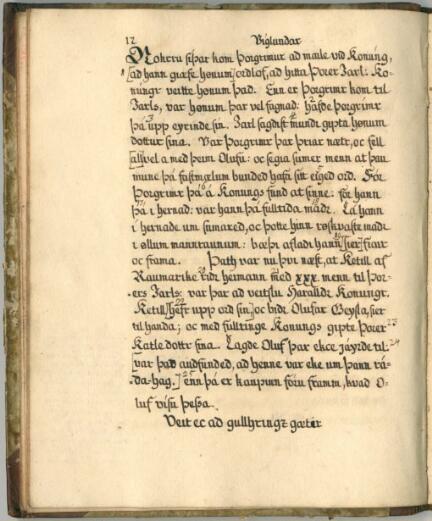 12 Viglundar
Nokkru siþar kom Þorgrimur ad maile vid Konung,
ad hann giæfe honum ordlof, ad hitta Þorer Jarl: Ko-
nungr veitte honum þad. Enn er Þorgrimr kom til
Jarls, var honum þar vel fagnad: hafde Þorgrimr
þá upp eyrinde sin. Jarl sagdist mundi gipta honum
dottur sina. Var Þorgrimr þar þriar nætr, oc fell
allvel a med þeim Olufu: oc segia sumer menn at þau
mune þá fastmælum bunded hafa sitt eiged ord. Fór
Þorgrimr þá á Konungs fund at sinne: fór hann
þá i hernad: var hann þá fulltida madr. Lá hann
i hernade um sumared, oc þotte hinn røskvaste madr
i øllum mannraunum: bæþi afladi hann sier fiár
oc frama. Þath var nu þvi næst, at Ketill af
Raumarike ridr heimann med xxx. menn til Þor-
ers Jarls: var þar ad veitslu Haralldr Konungr.
Ketill hefr upp ord sin, oc bidr Olufar Geysla, sier
til handa; oc med fulltinge Konungs gipte Þorer 23
Katle dottr sina. Lagde Oluf þar ekce jáyrde til: 24
var þad audfunded, ad henne var eke um þann rá-
da-hag. enn þá er kaupinn fóru framm, kvad O-
luf visu þessa.
Veit ec ad gullhringz gætir